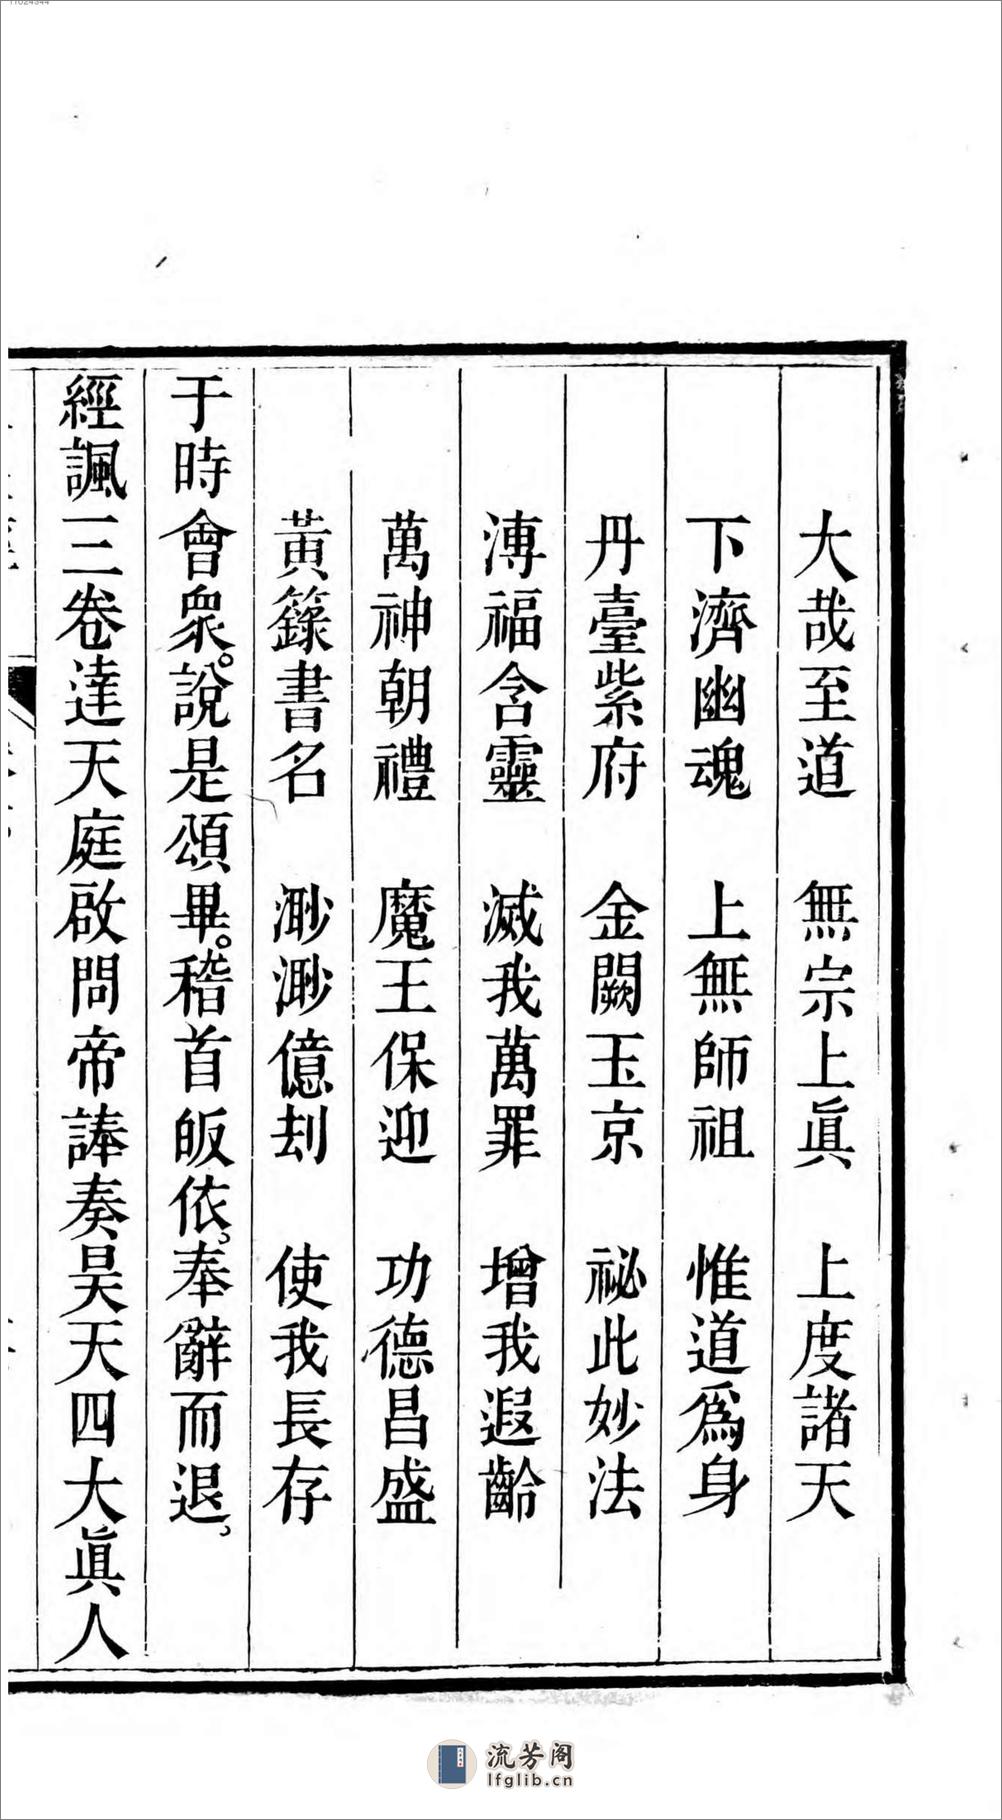 大哉至道　無宗上眞　上度諸天
下濟幽魂　上無師祖　惟道爲身
丹臺紫府　金闕玉京　祕此妙法
溥福含靈　滅我萬罪　增我遐齡
萬神朝禮　魔王保迎　功德昌盛
黃籙書名　渺渺億刦　使我長存
于時會衆。說是頌畢。稽首皈依，奉辭而退，
經諷三卷達天庭啟問帝諱奏昊天四大眞人
流芳阁
lfglib.cn